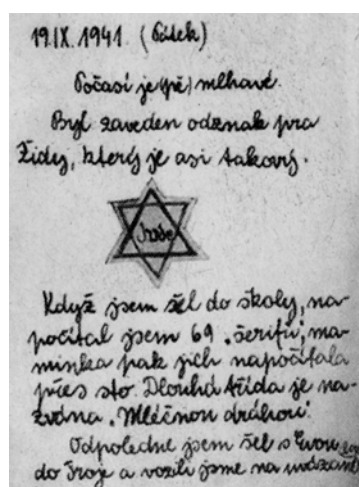 19.IX. 1941. (Pátek)
Počasí je (pě) mlhavé.
Byl zaveden odznak pro
Židy, který je asi takový.
Jude
Když jsem šel do školy, na-
počítal jsem 69 „šerifů“, ma-
minka pak jich napočítala
přes sto. Dlouhá třída je na-
zvána „Mléčnou dráhou“.
Odpoledne jsem šel s Evou
do Troje a vozili jsme na